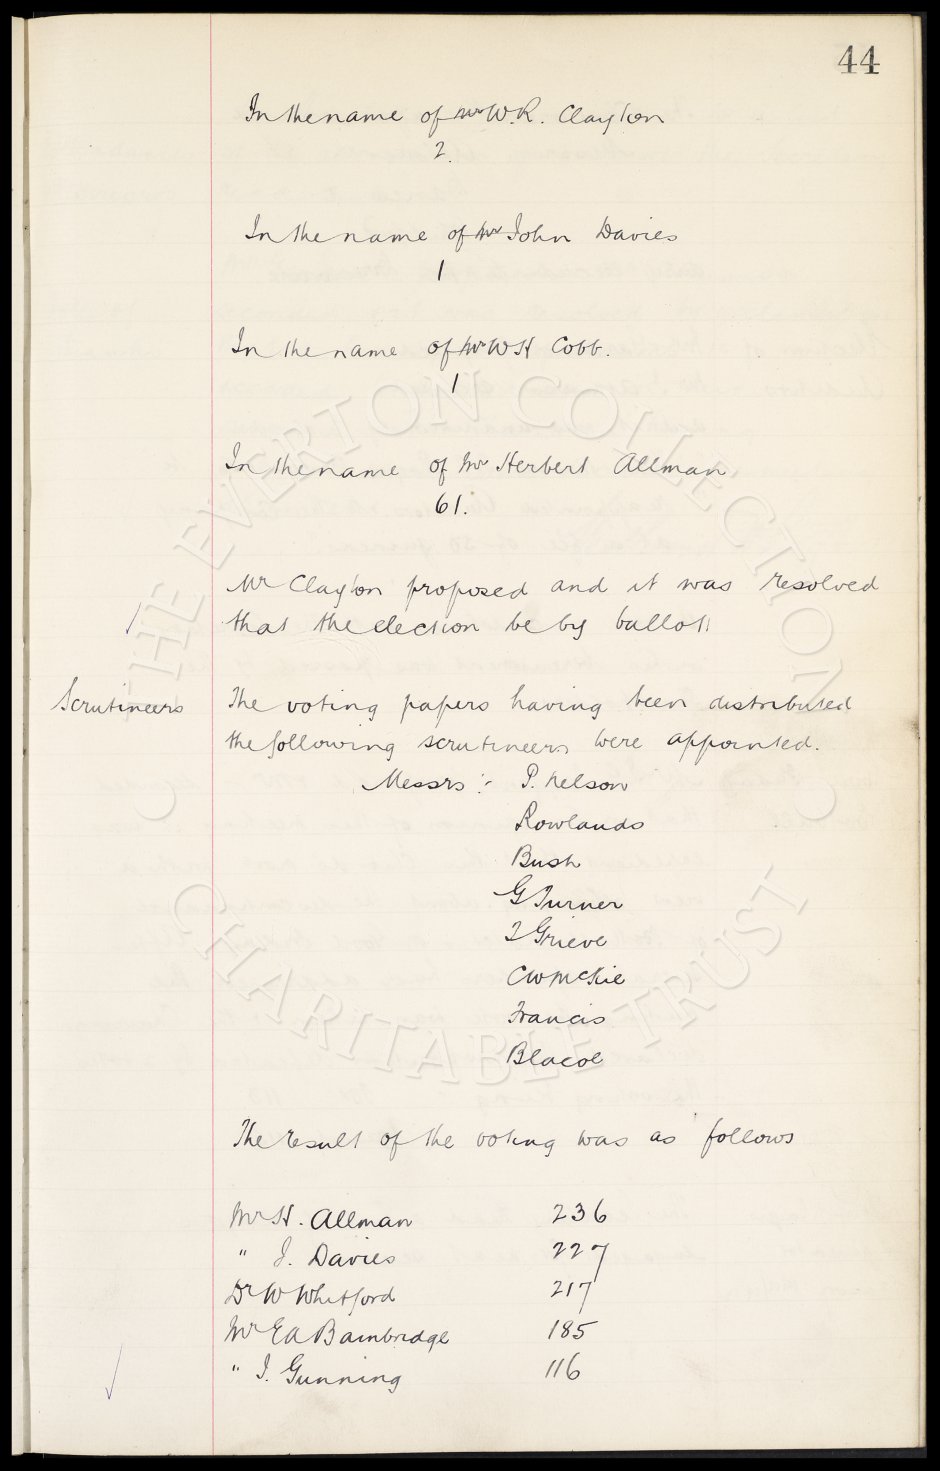 44
In the name of Mr W.R. Clayton
2.
In the name of Mr John Davies
1
In the name of Mr W H Cobb.
1
In the name of Mr Herbert Allman
61.
Mr Clayton proposed and it was resolved
that the election be by ballot
Scrutineers
The voting papers having been distributed
the following scrutineers were appointed.
Messrs :- P. Nelson
Rowlands
Bush
G Turner
J Grieve
C W McKie
Francis
Blacoe
The result of the voting was as follows
Mr H. Allman 236
" J. Davies 227
Dr W Whitford 217
Mr E A Bainbridge 185
" J. Gunning 116
THE EVERTON COLLECTION
CHARITABLE TRUST